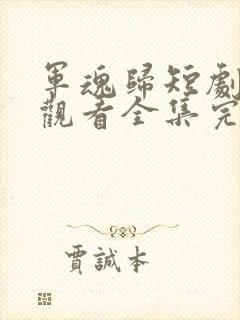 軍魂歸短劇
觀看全集完
賈誠本